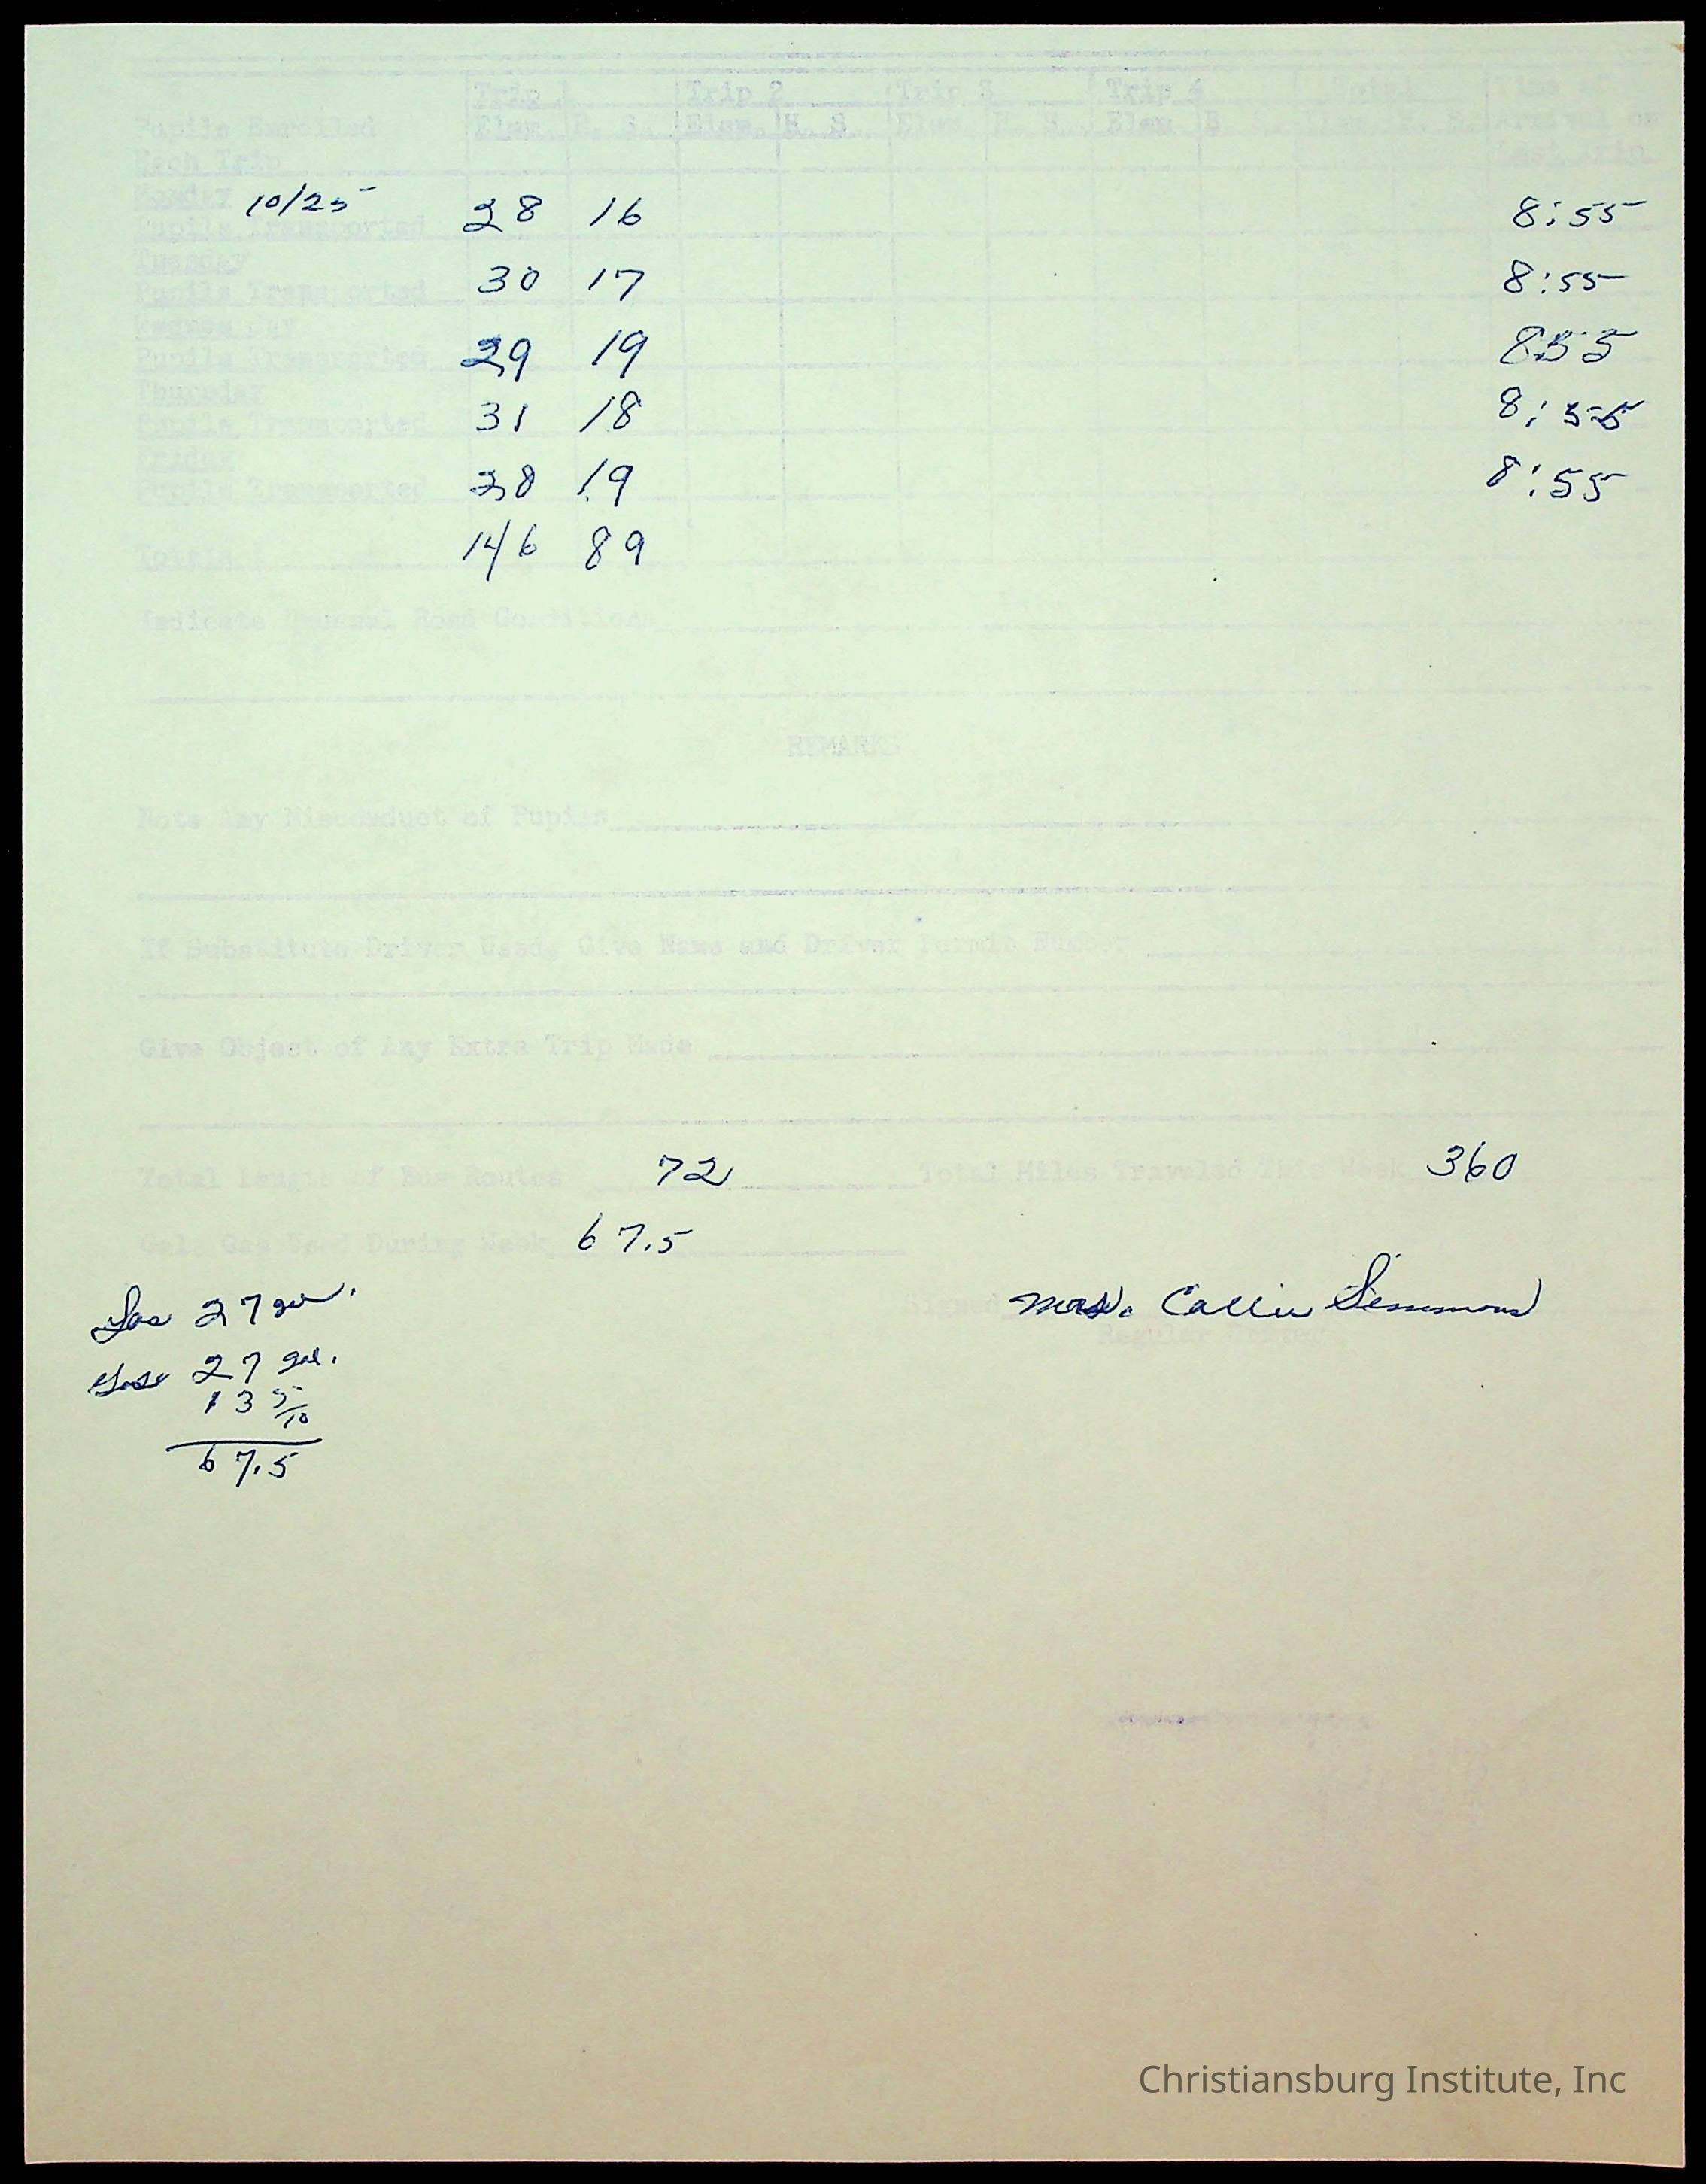 Trip 1 Trip 2 Trip 3 Trip 4 Total Time of
Pupils Enrolled Elem. H. S. Elem. H. S. Elem. H. S. Elem. H. S. Elem. H. S. Arrival on
Each Trip Last Trip
Monday 10/25
Pupils Transported 28 16 8:55
Tuesday
Pupils Transported 30 17 8:55
Wednesday
Pupils Transported 29 19 855
Thursday
Pupils Transported 31 18 8:55
Friday
Pupils Transported 28 19 8:55
Totals 146 89
Indicate General Road Conditions
REMARKS
Note Any Misconduct of Pupils
If Substitute Driver Used, Give Name and Driver Permit Number
Give Object of Any Extra Trip Made
Total Length of Bus Routes 72 Total Miles Traveled This Week 360
Gal. Gas Used During Week 67.5
Signed Mrs. Callie Simmons
Regular Driver
Gas 27 gal.
Gas 27 gal.
13 5/10
67.5
Christiansburg Institute, Inc